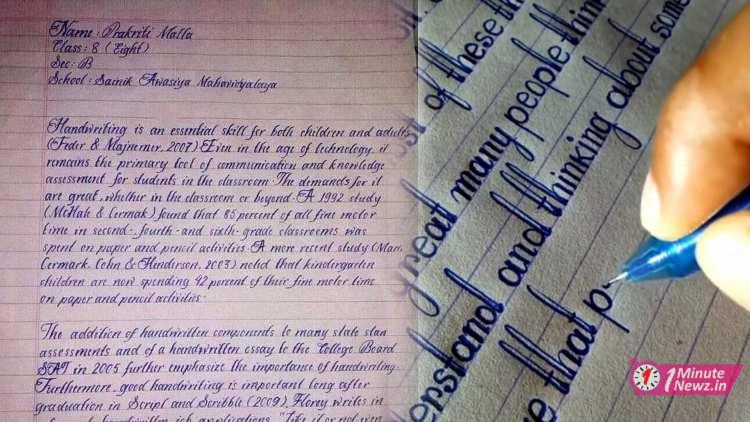 Name : Prakriti Malla
Class : 8 (Eight)
Sec : B
School : Sainik Awasiya Mahavidyalaya
Handwriting is an essential skill for both children and adults
(Feder & Majnemer, 2007) Even in the age of technology, it
remains the primary tool of communication and knowledge
assessment for students in the classroom. The demands for it
are great, whether in the classroom or beyond. A 1992 study
(McHale & Cermak) found that 85 percent of all fine motor
time in second-, fourth- and sixth-grade classrooms was
spent on paper and pencil activities. A more recent study (Marr,
Cermark, Cohn & Henderson, 2003) noted that kindergarten
children are now spending 42 percent of their fine motor time
on paper and pencil activities.
The addition of handwritten components to many state stan
assessments and of a handwritten essay to the College Board
SAT in 2005 further emphasize the importance of handwriting.
Furthermore, good handwriting is important long after
graduation in Script and Scribble (2009), Florey writes in
handwritten job applications, "Like it or not
of these th
great many people thin
understand and thinking about some
that p
1 Minute
Newz.in